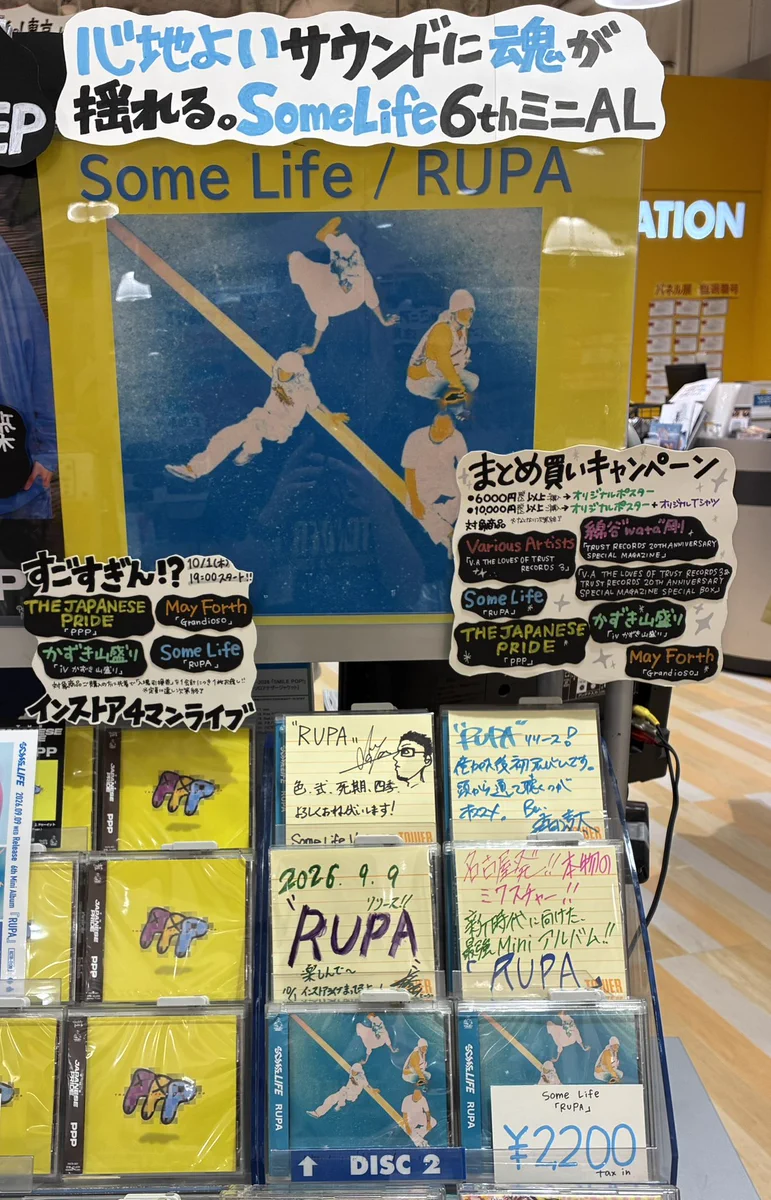 心地よいサウンドに魂が
揺れる。SomeLife 6thミニAL
EP
Some Life / RUPA
ATION
パネル展
まとめ買いキャンペーン
•6000円以上 → オリジナルポスター
•10,000円以上 → オリジナルポスター + オリジナルTシャツ
対象商品
Various Artists
「V.A THE LOVES OF TRUST RECORDS 3」
綿谷"wata"剛
「TRUST RECORDS 20TH ANNIVERSARY
SPECIAL MAGAZINE」
「V.A THE LOVES OF TRUST RECORDS 3&
TRUST RECORDS 20TH ANNIVERSARY
SPECIAL MAGAZINE SPECIAL BOX」
Some Life
「RUPA」
かずき山盛り
「iv かずき山盛り」
THE JAPANESE
PRIDE
「PPP」
May Forth
「Grandioso」
すごすぎん!?
10/1(木)
19:00スタート!!
THE JAPANESE
PRIDE
「PPP」
May Forth
「Grandioso」
かずき山盛り
「iv かずき山盛り」
Some Life
「RUPA」
インストア4マンライブ
"RUPA"
色、式、死期、四季、
よろしくおねがいします!
Some Life
TOWER
"RUPA" リリース!
"RUPA"
2026.9.9
リリース!!
"RUPA
楽しんで〜
名古屋発!! 本物の
ミクスチャー!!
新時代に向けた、
最強Miniアルバム!!
「RUPA
TOWER
SOME LIFE
2026.09.09 WED Release 6th Mini Album 『RUPA』
JAPANESE PRIDE
PPP
JAPANESE PRIDE
PPP
JAPANESE PRIDE
PPP
SOME LIFE
RUPA
SOME LIFE
RUPA
↑ DISC 2
Some Life
「RUPA」
¥2,200
tax in